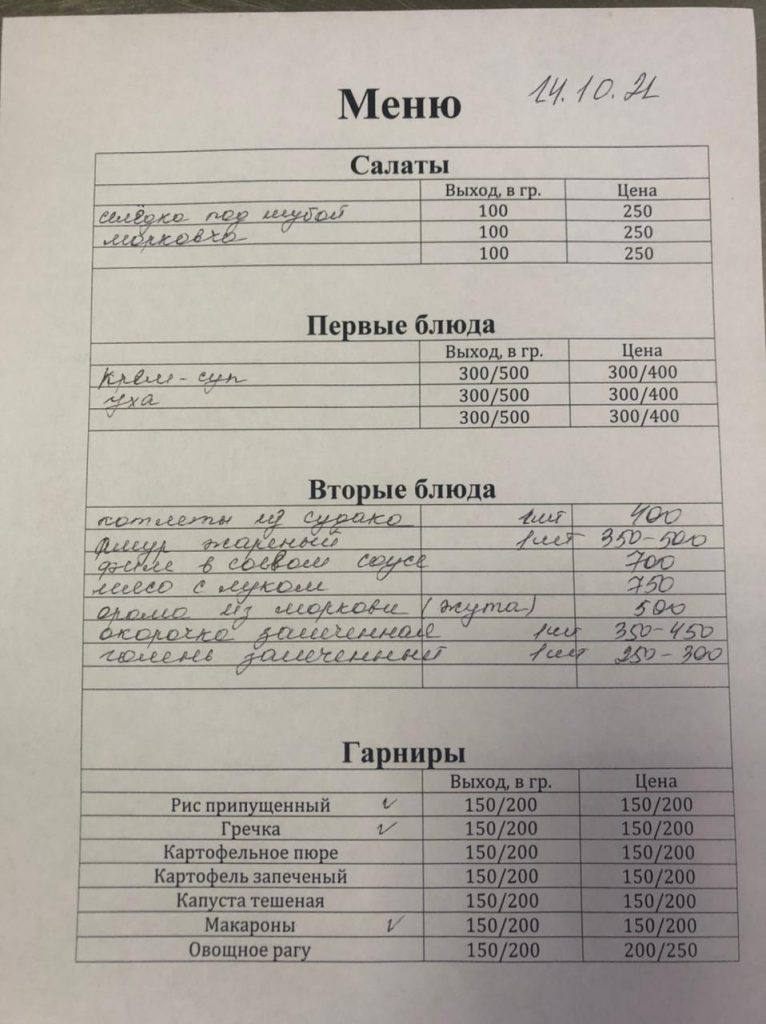 Меню 14.10.21
Салаты
Выход, в гр. Цена
селёдка под шубой 100 250
морковча 100 250
100 250
Первые блюда
Выход, в гр. Цена
крем-суп 300/500 300/400
уха 300/500 300/400
300/500 300/400
Вторые блюда
котлеты из судака 1шт 400
амур жареный 1шт 350-500
филе в соевом соусе 700
мясо с луком 750
орома из моркови (жута) 500
окорочка запеченная 1шт 350-450
голень запеченный 1шт 250-300
Гарниры
Выход, в гр. Цена
Рис припущенный ✓ 150/200 150/200
Гречка ✓ 150/200 150/200
Картофельное пюре 150/200 150/200
Картофель запеченый 150/200 150/200
Капуста тешеная 150/200 150/200
Макароны ✓ 150/200 150/200
Овощное рагу 150/200 200/250